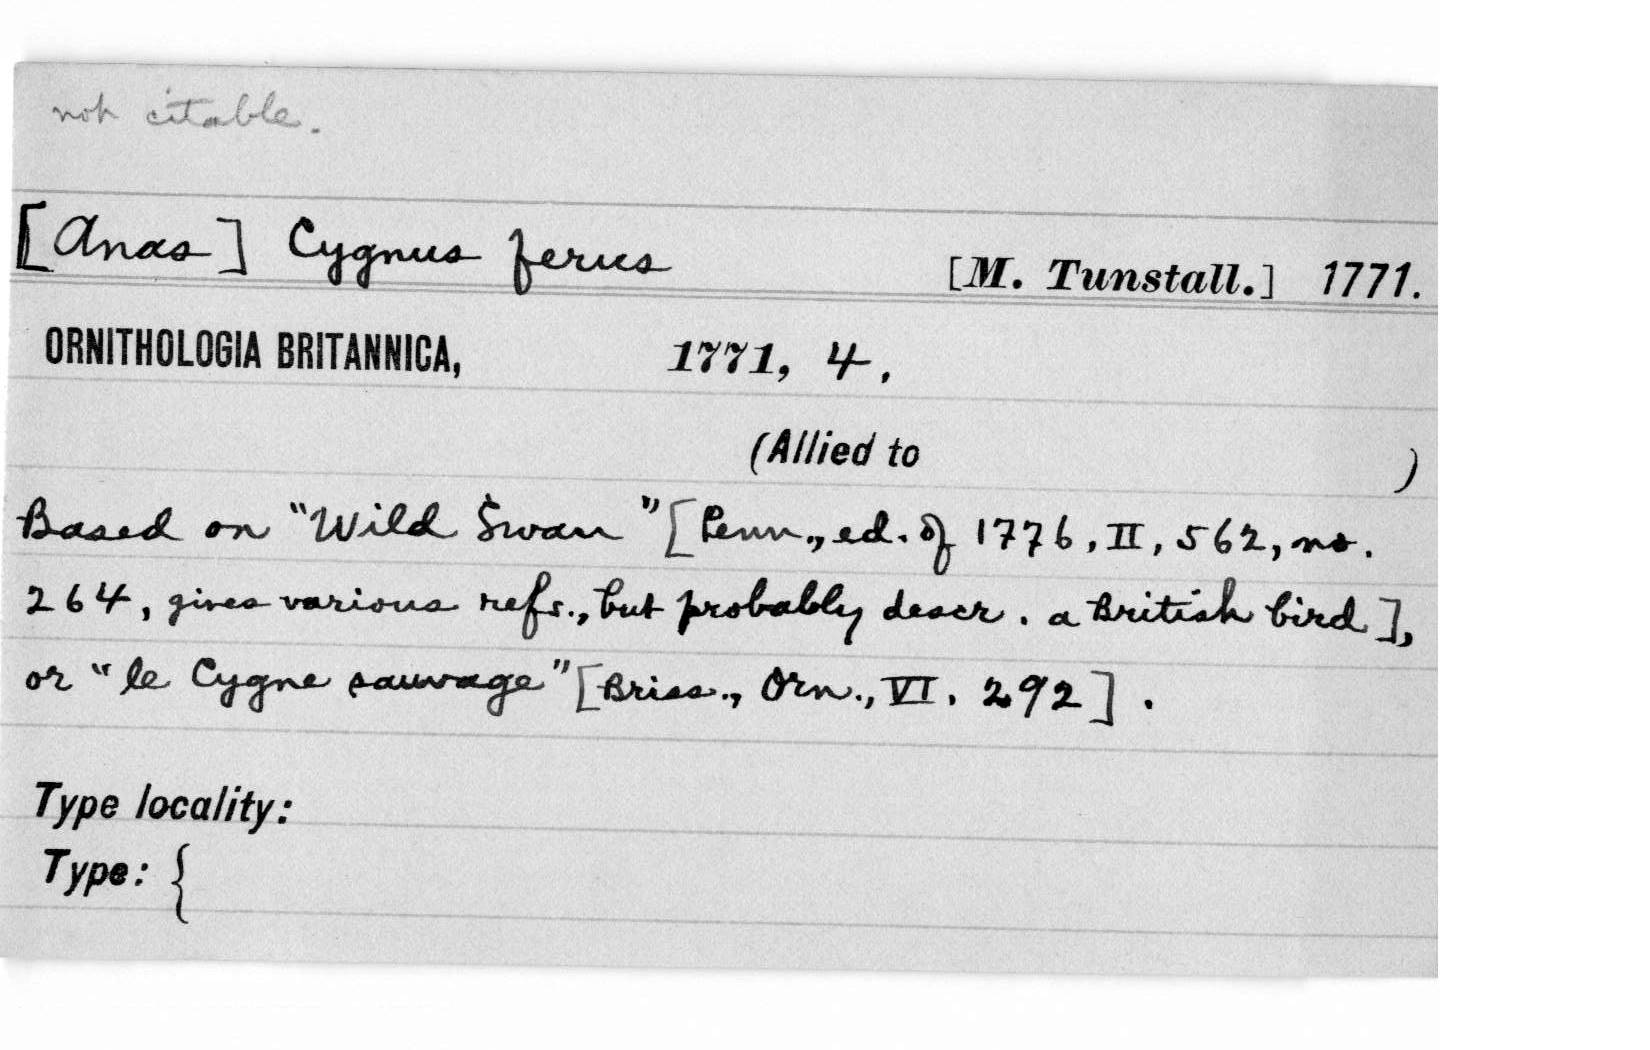 not citable.
[Anas] Cygnus ferus [M. Tunstall.] 1771.
ORNITHOLOGIA BRITANNICA, 1771, 4.
(Allied to )
Based on "Wild Swan" [Penn., ed. of 1776, II, 562, no.
264, gives various refs., but probably descr. a British bird],
or "le Cygne sauvage" [Briss., Orn., VI. 292].
Type locality:
Type: {